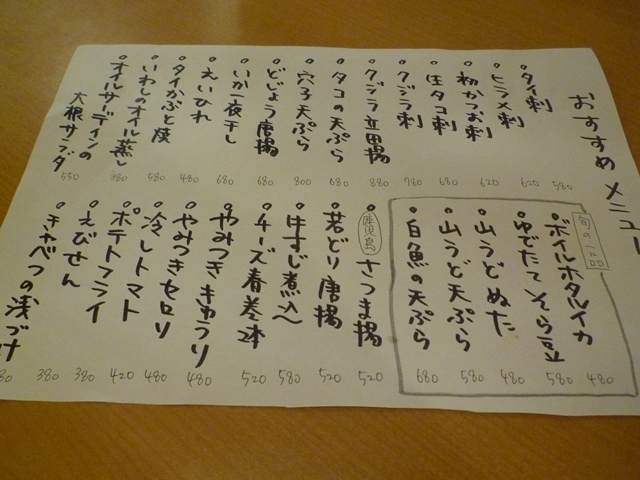 おすすめメニュー
タイ刺 580
ヒラメ刺 620
初かつお刺 620
生タコ刺 680
クジラ刺 780
クジラ立田揚 880
タコの天ぷら 680
穴子天ぷら 800
どじょう唐揚 680
いか一夜干し 680
えいひれ 480
タイかぶと焼 580
いわしのオイル蒸し
オイルサーディンの
大根サラダ 550
旬の一品
ボイルホタルイカ 480
ゆでたてそら豆 580
山うどぬた 480
山うど天ぷら 580
白魚の天ぷら 680
鹿児島 さつま揚 520
若どり唐揚 520
牛すじ煮込 580
チーズ春巻2本 520
やみつききゅうり 480
やみつきセロリ 480
冷しトマト 420
ポテトフライ 380
えびせん 380
きゃべつの浅づけ 80